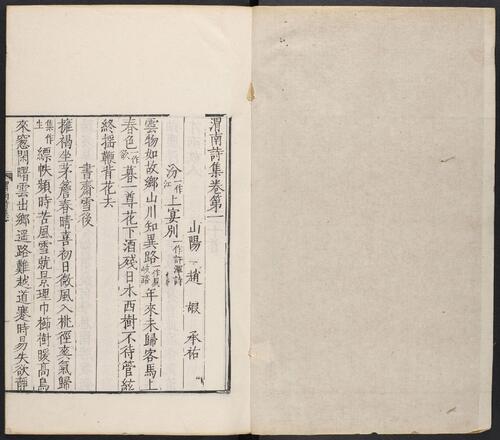 渭南詩集卷第一
山陽 趙 嘏 承祐
汾一作江上宴別一作許渾詩
雲物如故鄉山川知異路一作歧路年來未歸客馬上
春色一作欲暮一尊花下酒殘日木西樹不待管絃
終揺鞭背花去
書齋雪後
擁褐坐茅簷春晴喜初日微風入桃徑爽氣歸
集作生縹帙頻時苦風雪就景理巾櫛樹暖高鳥
來窻閑曙雲出鄉遥路難越道蹇時易失欲靜